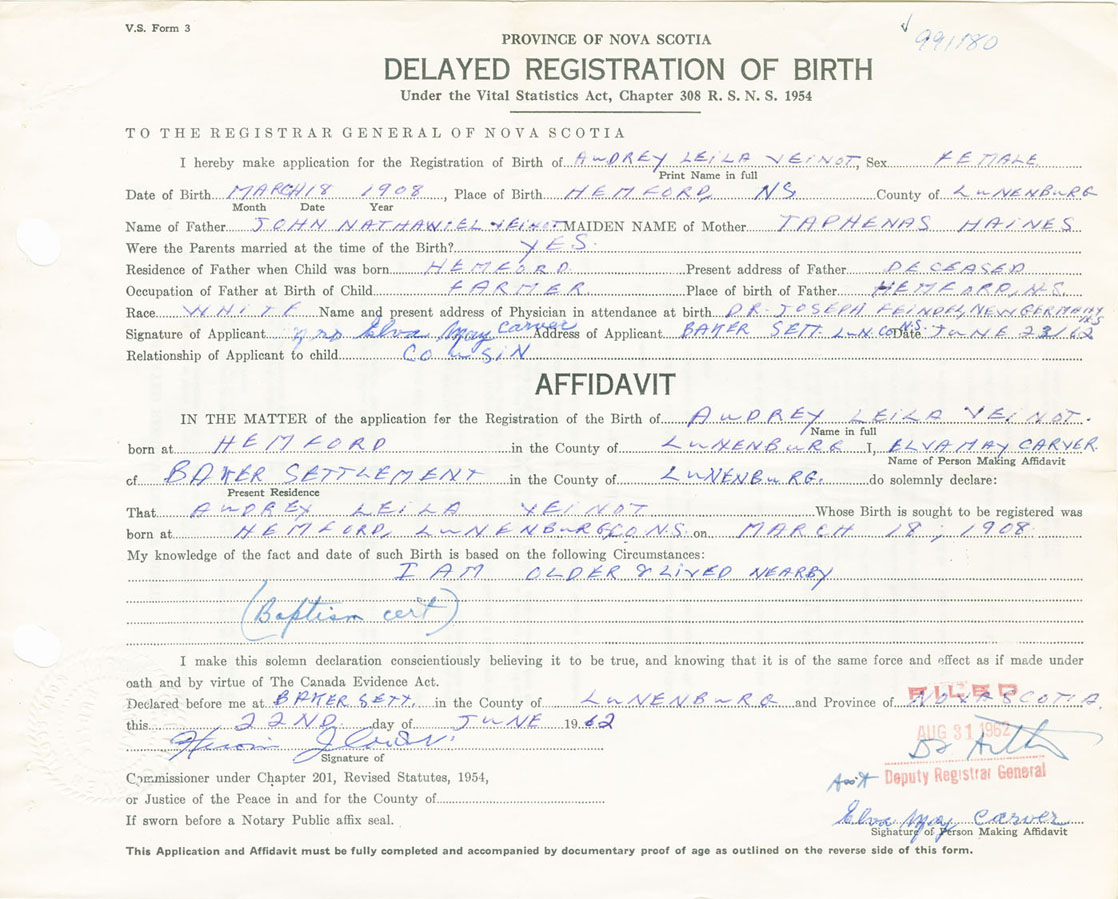 V.S. Form 3
991180
PROVINCE OF NOVA SCOTIA
DELAYED REGISTRATION OF BIRTH
Under the Vital Statistics Act, Chapter 308 R. S. N. S. 1954
TO THE REGISTRAR GENERAL OF NOVA SCOTIA
I hereby make application for the Registration of Birth of AUDREY LEILA VEINOT, Sex FEMALE
Print Name in full
Date of Birth MARCH 18 1908, Place of Birth HEMFORD, NS County of LUNENBURG
Month Date Year
Name of Father JOHN NATHANIEL VEINOT MAIDEN NAME of Mother TAPHENAS HAINES
Were the Parents married at the time of the Birth? YES
Residence of Father when Child was born HEMFORD Present address of Father DECEASED
Occupation of Father at Birth of Child FARMER Place of birth of Father HEMFORD, N.S.
Race WHITE Name and present address of Physician in attendance at birth DR. JOSEPH FEINDEL, NEW GERMANY NS
Signature of Applicant Mrs Elva May Carver Address of Applicant BAKER SETT. LUN. CO N.S. Date JUNE 23/62
Relationship of Applicant to child COUSIN
AFFIDAVIT
IN THE MATTER of the application for the Registration of the Birth of AUDREY LEILA VEINOT.
Name in full
born at HEMFORD in the County of LUNENBURG I, ELVA MAY CARVER.
Name of Person Making Affidavit
of BAKER SETTLEMENT in the County of LUNENBURG. do solemnly declare:
Present Residence
That AUDREY LEILA VEINOT Whose Birth is sought to be registered was
born at HEMFORD, LUNENBURG CO. N.S. on MARCH 18, 1908
My knowledge of the fact and date of such Birth is based on the following Circumstances:
I AM OLDER & LIVED NEARBY
(Baptism cert)
I make this solemn declaration conscientiously believing it to be true, and knowing that it is of the same force and effect as if made under
oath and by virtue of The Canada Evidence Act.
Declared before me at BAKER SETT. in the County of LUNENBURG and Province of NOVA SCOTIA.
FILED
this 22ND day of JUNE 1962
AUG 31 1962
Signature of
Deputy Registrar General
Ass't
Commissioner under Chapter 201, Revised Statutes, 1954,
or Justice of the Peace in and for the County of
If sworn before a Notary Public affix seal.
Elva May Carver
Signature of Person Making Affidavit
This Application and Affidavit must be fully completed and accompanied by documentary proof of age as outlined on the reverse side of this form.